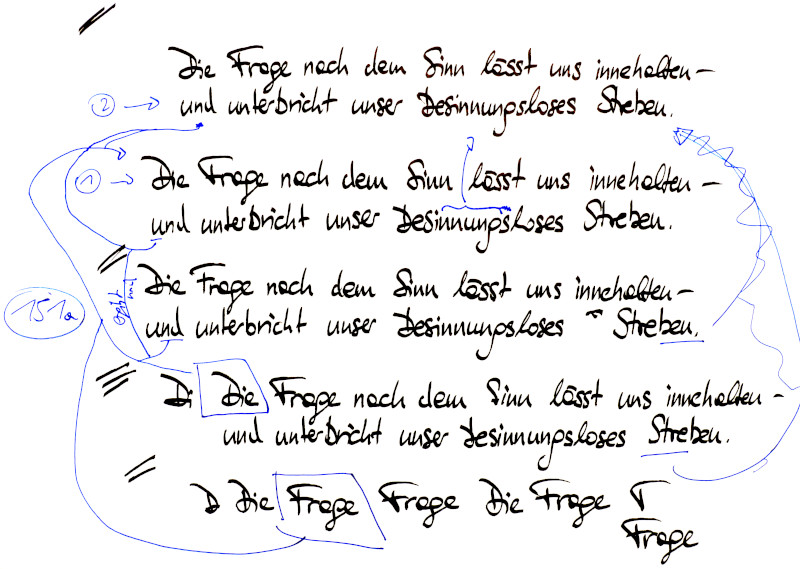 Die Frage nach dem Sinn lässt uns innehalten –
② → und unterbricht unser besinnungsloses Streben.
① → Die Frage nach dem Sinn lässt uns innehalten –
und unterbricht unser besinnungsloses Streben.
Die Frage nach dem Sinn lässt uns innehalten –
151a und unterbricht unser besinnungsloses Streben.
Di Die Frage nach dem Sinn lässt uns innehalten –
und unterbricht unser besinnungsloses Streben.
D Die Frage Frage Die Frage T
Frage